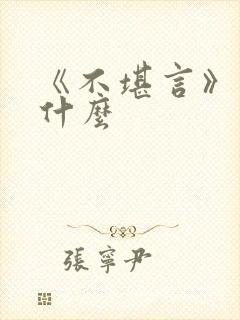 《不堪言》
什麼
張寧尹